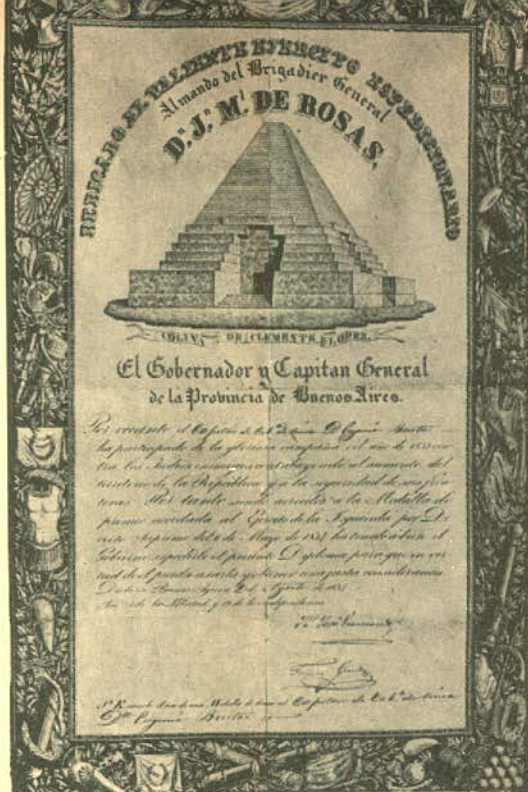 DEDICADO AL VALIENTE EJERCITO ESPEDICIONARIO
Al mando del Brigadier General
D.n J.n M.l DE ROSAS.
COLINA DE CLEMENTE LOPEZ.
El Gobernador y Capitan General
de la Provincia de Buenos Aires.
Por cuanto el Capitan de D. Eugenio Bustos
ha participado de la gloriosa campaña del año de 1833 con
tra los Indios enemigos contribuyendo al aumento del
territorio de la República y a la seguridad de sus fron
teras Por tanto acreedor a la Medalla de
premio acordada al Ejercito de la Izquierda por De
creto Supremo del de Mayo de 183 ha tenido a bien el
Gobierno expedirle el presente Diploma para que en vir
tud de el pueda usarla y obtener una justa consideracion
Dado en Buenos Ayres a de Agosto de
Año de la Libertad, y de la independencia
José
de oro al Capitan de linea
D.n Eugenio Bustos